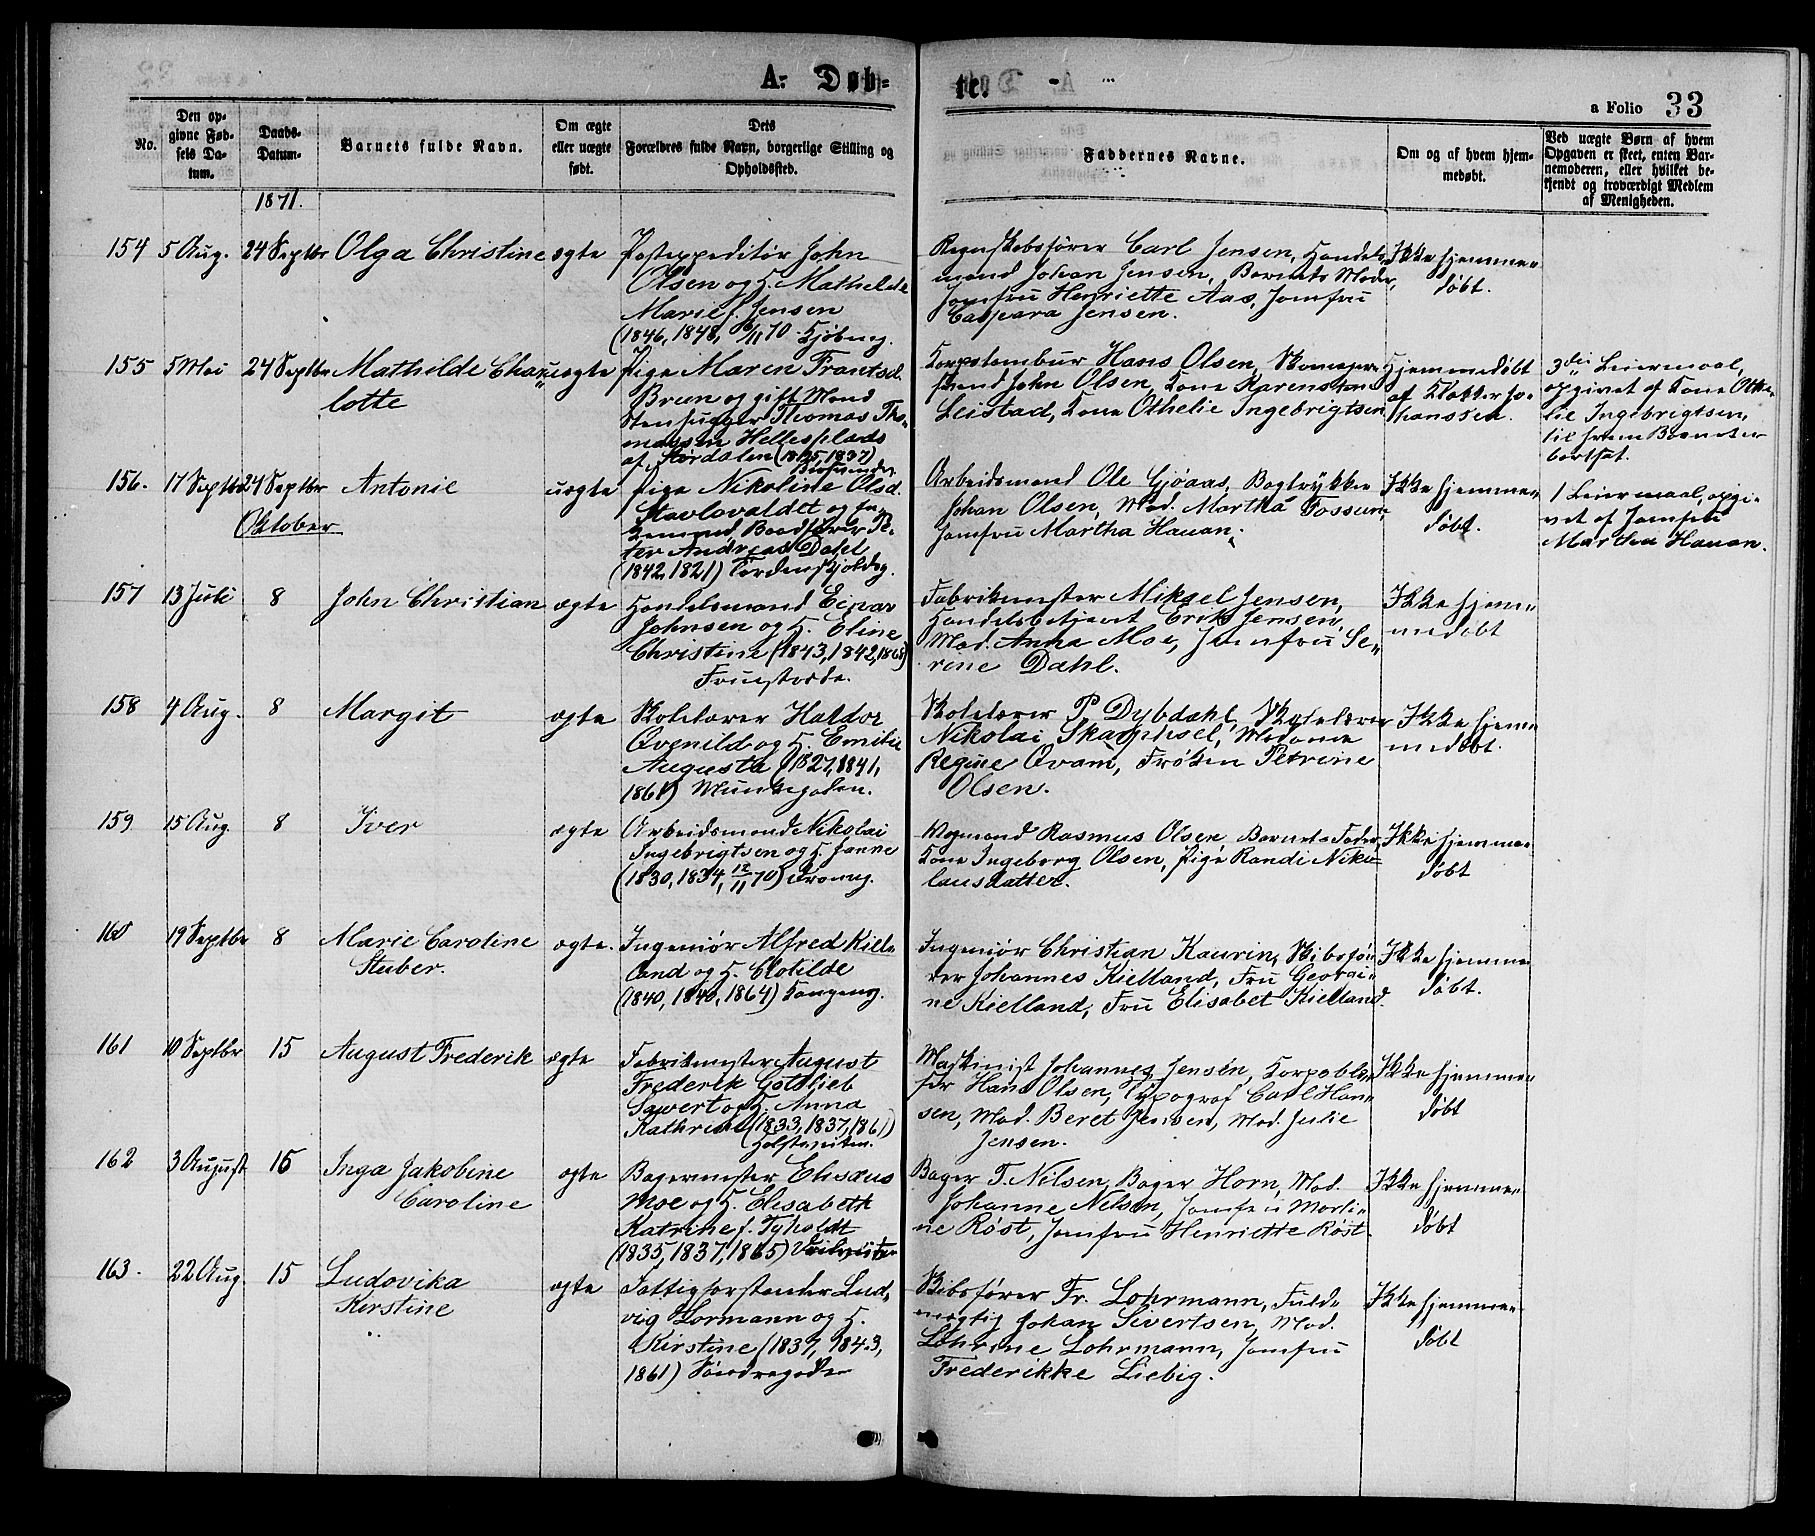 A. Døb-
te.
a Folio 33
No.
Den opgivne Fødsels Datum.
Daabs-Datum.
Barnets fulde Navn.
Om ægte eller uægte født.
Dets Forældres fulde Navn, borgerlige Stilling og Opholdssted.
Faddernes Navne.
Om og af hvem hjemmedøbt.
Ved uægte Børn af hvem Opgaven er skeet, enten Barnemoderen, eller hvilket bekjendt og troværdigt Medlem af Menigheden.
1871.
154 5 Aug. 24 Septbr Olga Christine ægte Postexpeditør John
Olsen og H. Mathilde
Marie f. Jensen
(1846, 1848, 70
Regnskabsfører Carl Jensen, Handels-
mand Johan Jensen, Barnets Moder,
Jomfru Henriette Aas, Jomfru
Caspara Jensen.
Ikke hjemme-
døbt.
155 5 Mai 24 Septbr Mathilde Char-
lotte
uægte Pige Maren Frantsd.
Brun og gift Mand
Stenhugger Thomas Tho-
massen Hellesplads
af Størdalen (1835, 1837)
Korpstambur Hans Olsen,
John Olsen, Kone Karen
Leistad, Kone Othelie Ingebrigtsen
Hjemmedøbt
af Klokker Jo-
hanssen.
3die Leiermaal,
opgivet af Kone Othe-
lie Ingebrigtsen,
156. 17 Septbr 24 Septbr Antonie uægte Pige Nikoline Olsd.
Stavlovaldet og
Peter Andreas Dahl
(1842, 1821) Tordenskjoldsg.
Arbeidsmand Ole Gjøaas, Bogtrykker
Johan Olsen, Mad. Martha Fossum,
Jomfru Martha Hauan.
Ikke hjemme-
døbt.
1 Leiermaal, opgi-
vet af Jomfru
Martha Hauan.
Oktober
157 13 Juli 8 John Christian ægte Handelsmand Einar
Johnsen og H. Eline
Christine (1843, 1842, 1868)
Fabrikmester Mikael Jensen,
Handelsbetjent Erik Jensen,
Mad. Anna Moe, Jomfru Se-
rine Dahl.
Ikke hjem-
medøbt
158 4 Aug. 8 Margit ægte Skolelærer Haldor
Qvenild og H. Emilie
Augusta (1827, 1841,
1861) Munkegaden.
Skolelærer P Dybdahl, Skolelærer
Nikolai Skaphsel, Madame
Regine Qvam, Frøken Petrine
Olsen.
Ikke hjem-
medøbt.
159 15 Aug. 8 Iver ægte Arbeidsmand Nikolai
Ingebrigtsen og H. Hanne
(1830, 1834, 12/11 70)
Vognmand Rasmus Olsen, Barnets Fader,
Kone Ingeborg Olsen, Pige Randi Niko-
lausdatter.
Ikke hjemme-
døbt
160 19 Septbr 8 Marie Caroline
Stuber.
ægte. Ingeniør Alfred Kiel-
land og H. Clotilde
(1840, 1840, 1864) Kongensg.
Ingeniør Christian Kaurin, Skibsfø-
rer Johannes Kielland, Fru Georgi-
ne Kielland, Fru Elisabet Kielland.
Ikke hjemme-
døbt.
161 10 Septbr 15 August Frederik ægte Fabrikmester August
Frederik Gottlieb
Sawert og H. Anna
Kathrine (1833, 1837, 1861)
Maskinist Johannes Jensen,
Hans Olsen, Typograf Carl Han-
sen, Mad. Beret Jensen, Mad. Julie
Jensen.
Ikke hjemme-
døbt
162 3 August 15 Inga Jakobine
Caroline
ægte Bagermester Elisæus
Moe og H. Elisabeth
Katrine f. Tyholdt
(1835, 1837, 1865)
Bager T. Nilsen, Bager Horn, Mad.
Johanne Nilsen, Jomfru Marti-
ne Røst, Jomfru Henriette Røst.
Ikke hjemme-
døbt
163. 22 Aug. 15 Ludovika
Kirstine
ægte Fattigforstander Lud-
vig Lormann og H.
Kirstine (1837, 1843,
1861) Søndregaden
Skibsfører Fr. Lohrmann, Fuld-
mægtig Johan Sivertsen, Mad.
Lohrine Lohrmann, Jomfru
Frederikke Liebig.
Ikke hjemme-
døbt